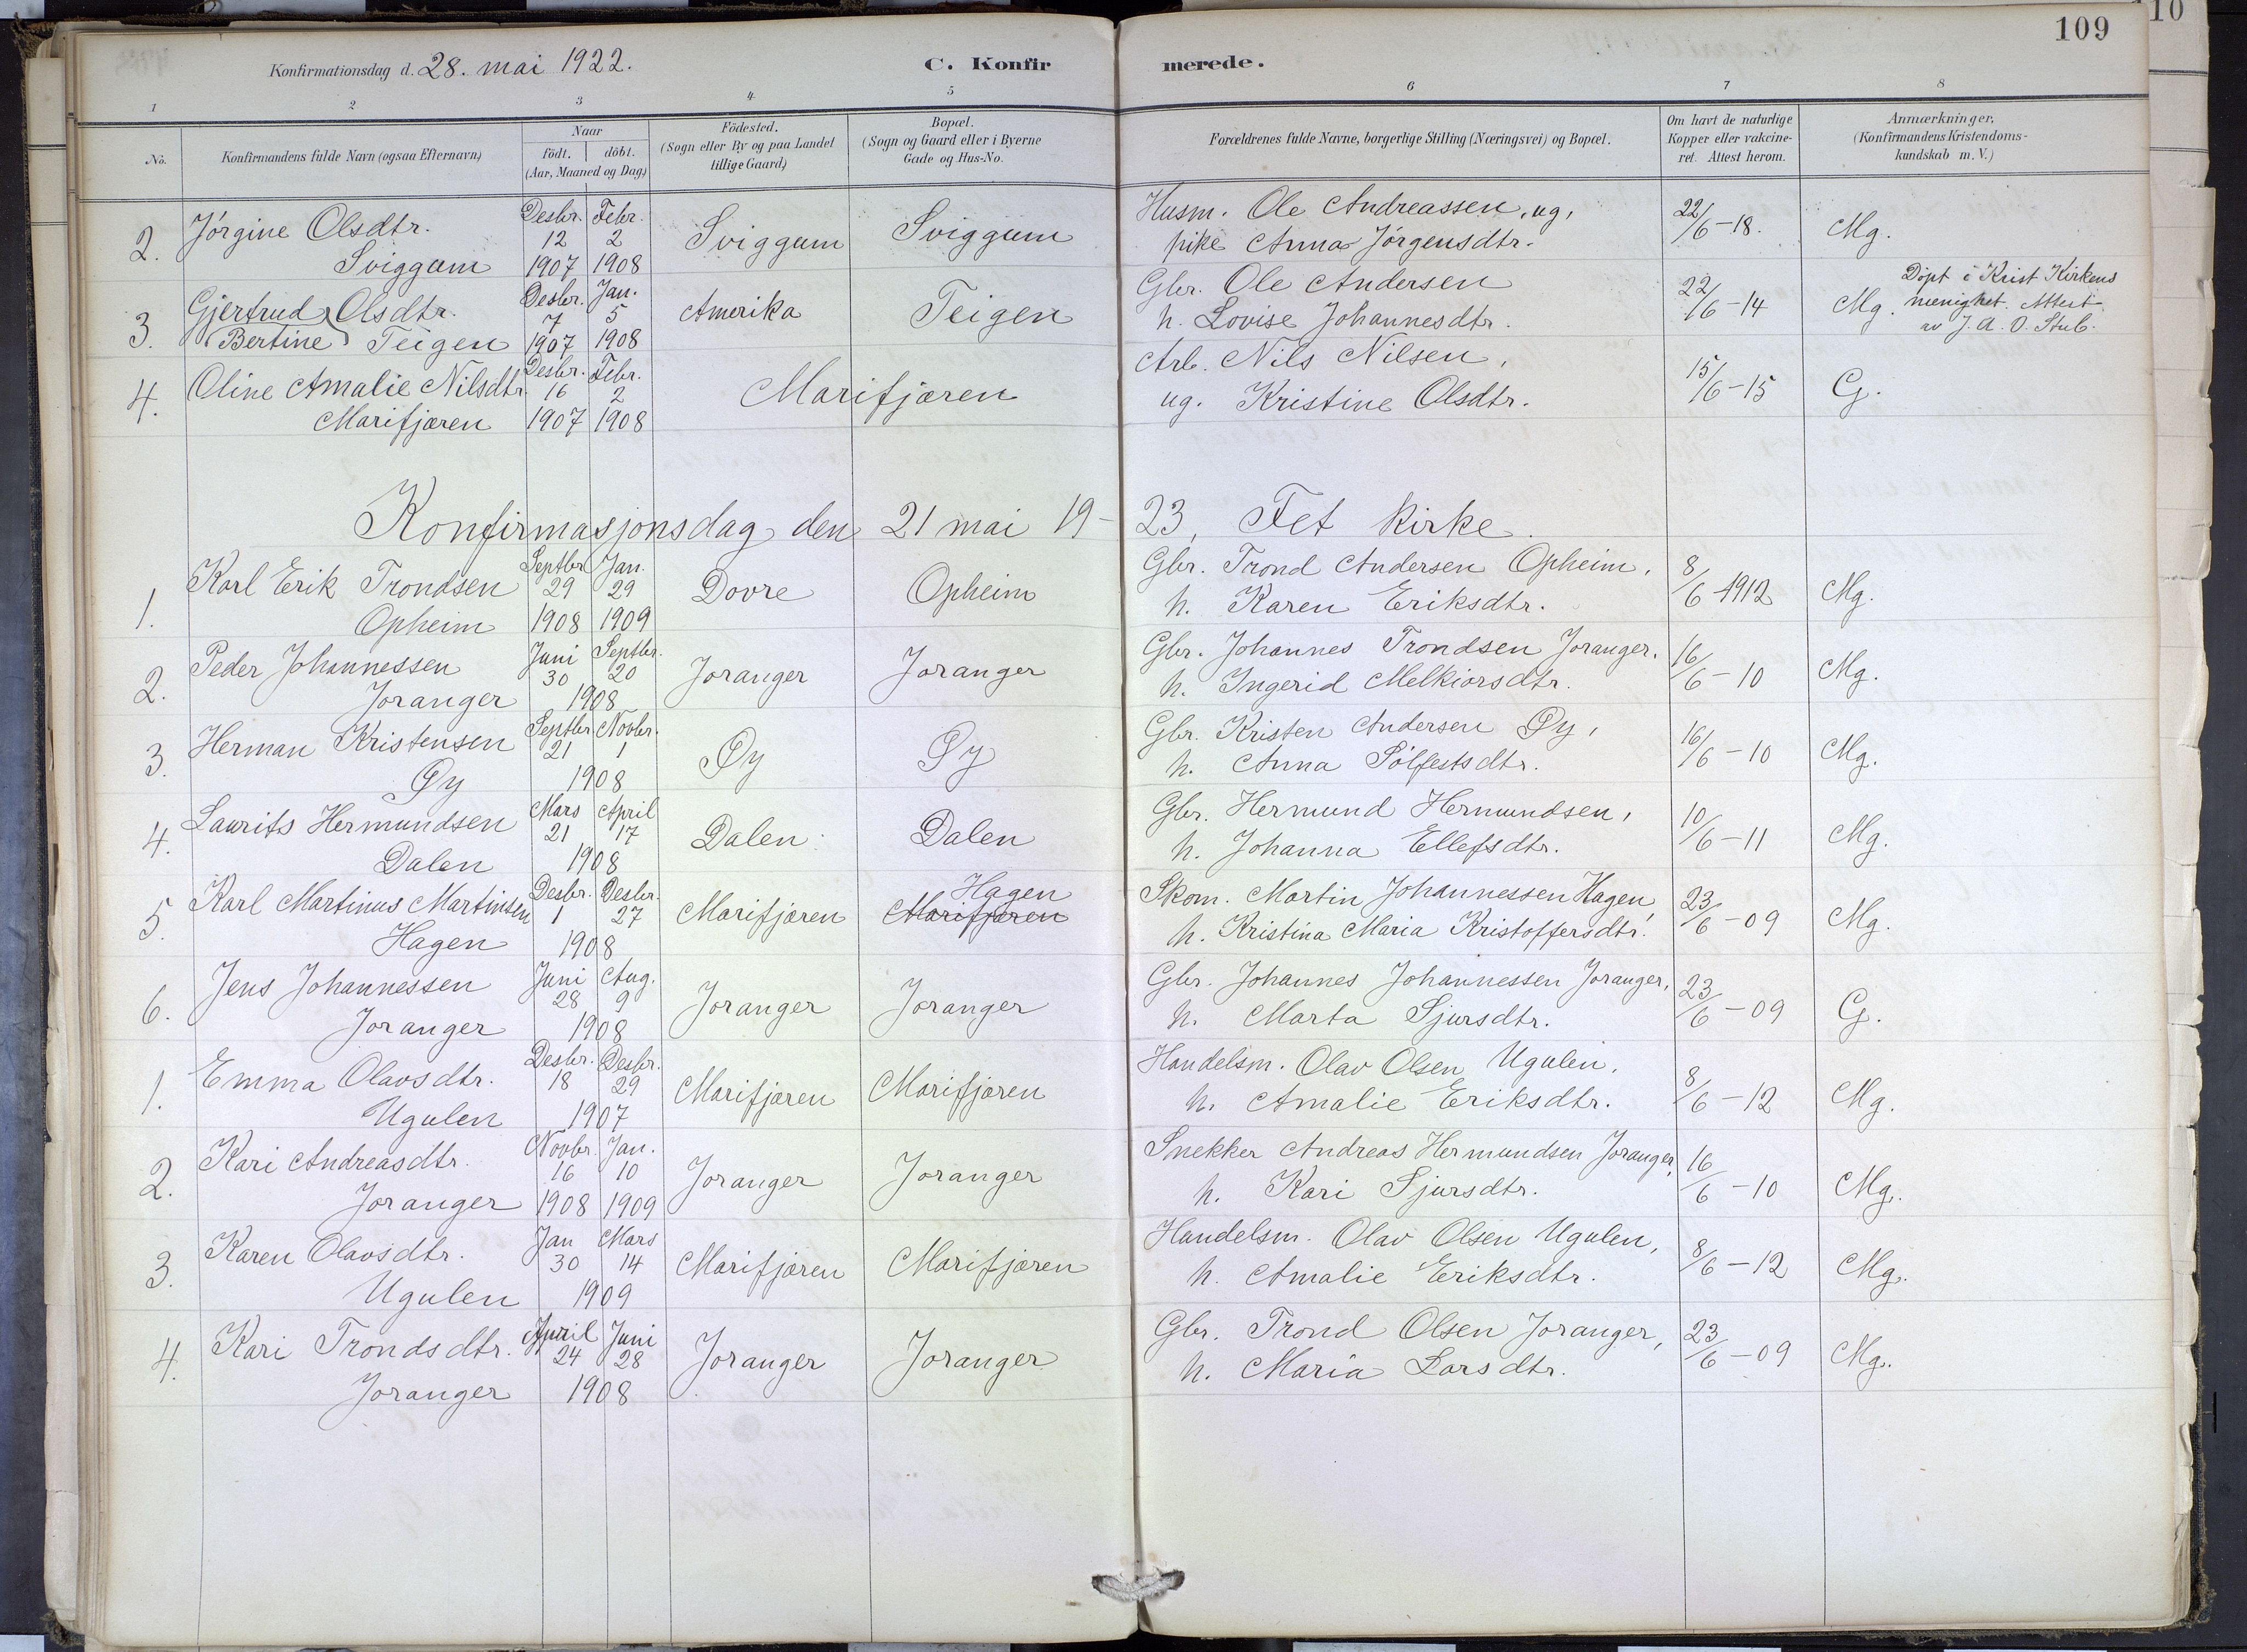 110
109
Konfirmationsdag d. 28. mai 1922.
C. Konfirmerede.
1 2 3 4 5 6 7 8
No. Konfirmandens fulde Navn (ogsaa Efternavn)
Naar
födt. döbt.
(Aar, Maaned og Dag)
Födested.
(Sogn eller By og paa Landet
tillige Gaard)
Bopæl.
(Sogn og Gaard eller i Byerne
Gade og Hus-No.
Forældrenes fulde Navne, borgerlige Stilling (Næringsvei) og Bopæl.
Om havt de naturlige
Kopper eller vakcine-
ret. Attest herom.
Anmærkninger,
(Konfirmandens Kristendoms-
kundskab m. V.)
2. Jörgine Olsdtr. Sviggum Desbr. 12 1907 Febr. 2 1908 Sviggum Sviggum
Husm. Ole Andreassen, ug.
pike Anna Jörgensdtr. 22/6-18. Mg.
3. Gjertrud (Bertine) Olsdtr. Teigen Desbr. 7 1907 Jan. 5 1908 Amerika Teigen
Gbr. Ole Andersen
h. Lovise Johannesdtr. 22/6-14 Mg.
Döpt i Krist Kirkens
menighet. Attest
av J. A. O. Stub.
4. Oline Amalie Nilsdtr. Marifjæren Desbr. 16 1907 Febr. 2 1908 Marifjæren
Arb. Nils Nilsen,
ug. Kristine Olsdtr. 15/6-15 G.
Konfirmasjonsdag den 21 mai 19-23, Fet kirke.
1. Karl Erik Trondsen Opheim Septbr 29 1908 Jan. 29 1909 Dovre Opheim
Gbr. Trond Andersen Opheim,
h. Karen Eriksdtr. 8/6-1912 Mg.
2. Peder Johannessen Joranger Juni 30 Septbr. 20 1908 Joranger Joranger
Gbr. Johannes Trondsen Joranger,
h. Ingerid Melkiorsdtr. 16/6-10 Mg.
3. Herman Kristensen Øy Septbr 21 Novbr. 1 1908 Øy Øy
Gbr. Kristen Andersen Øy,
h. Anna Sölfestsdtr. 16/6-10 Mg.
4. Laurits Hermundsen Dalen Mars 21 April 17 1908 Dalen Dalen
Gbr. Hermund Hermundsen,
h. Johanna Ellefsdtr. 10/6-11 Mg.
5. Karl Martinus Martinsen Hagen Desbr. 1 Desbr. 27 1908 Marifjæren Hagen Marifjæren
Skom. Martin Johannessen Hagen,
h. Kristina Maria Kristoffersdtr. 23/6-09 Mg.
6. Jens Johannessen Joranger Juni 28 Aug. 9 1908 Joranger Joranger
Gbr. Johannes Johannessen Joranger,
h. Marta Sjursdtr. 23/6-09 G.
1. Emma Olavsdtr. Ugulen Desbr. 18 Desbr. 29 1907 Marifjæren Marifjæren
Handelsm. Olav Olsen Ugulen,
h. Amalie Eriksdtr. 8/6-12 Mg.
2. Kari Andreasdtr. Joranger Novbr. 16 1908 Jan. 10 1909 Joranger Joranger
Snekker Andreas Hermundsen Joranger,
h. Kari Sjursdtr. 16/6-10 Mg.
3. Karen Olavsdtr. Ugulen Jan 30 Mars 14 1909 Marifjæren Marifjæren
Handelsm. Olav Olsen Ugulen,
h. Amalie Eriksdtr. 8/6-12 Mg.
4. Kari Trondsdtr. Joranger April 24 Juni 28 1908 Joranger Joranger
Gbr. Trond Olsen Joranger,
h. Maria Larsdtr. 23/6-09 Mg.